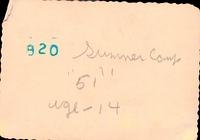 820 Summer Camp
"51"
age - 14